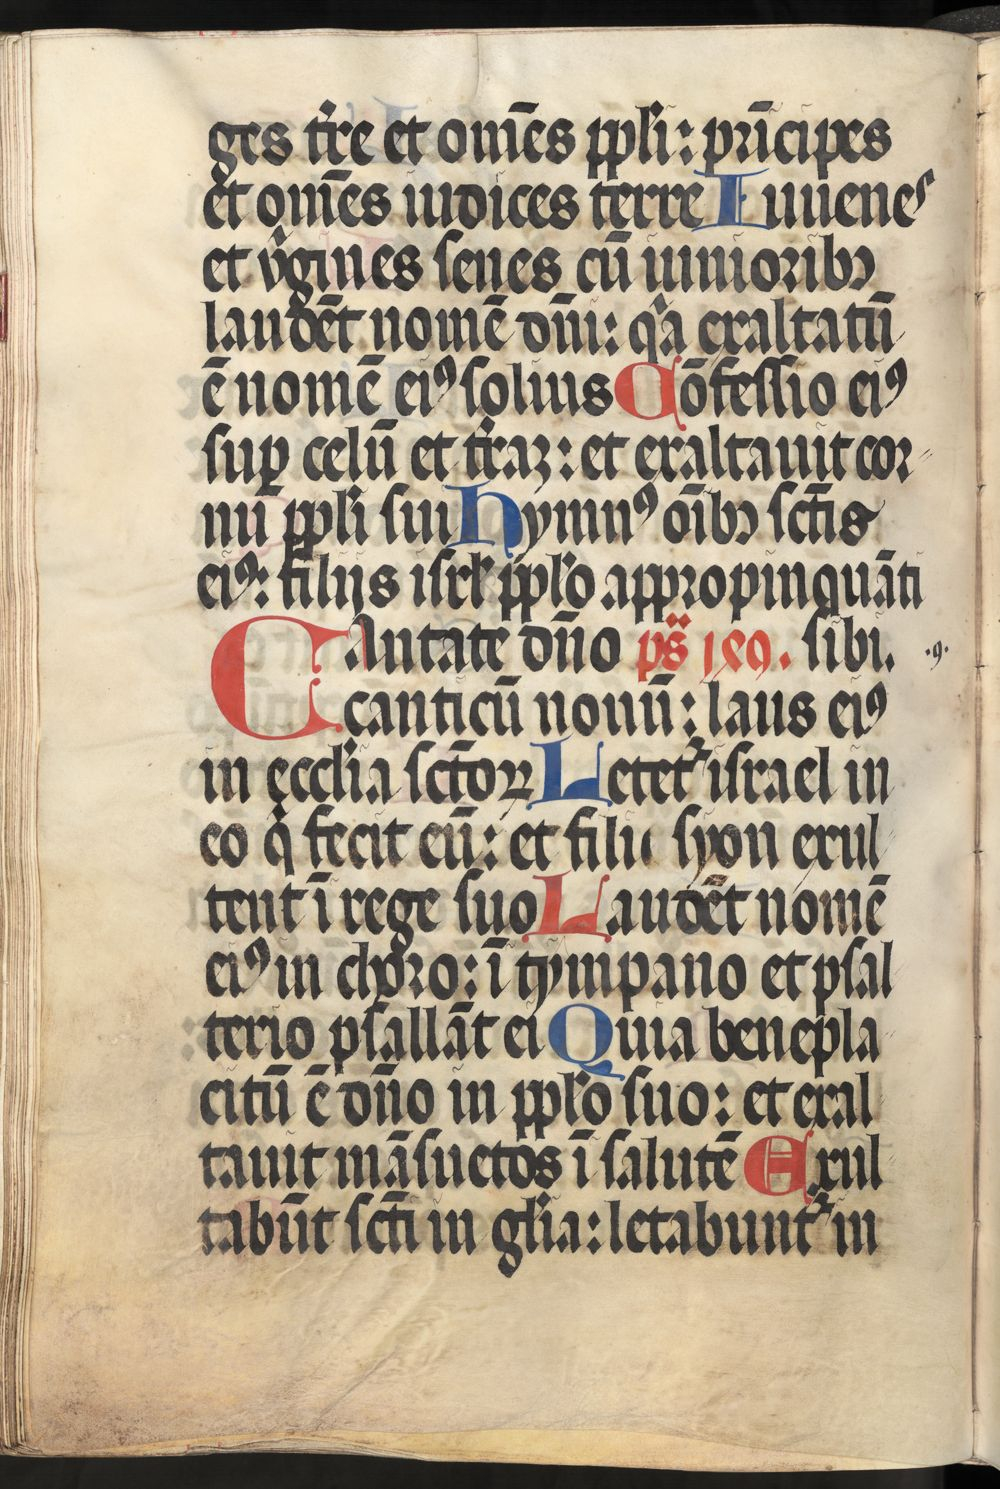 ges t̃re et om̃es ppl̃i: prĩcipes
et om̃es iudices terre Iuuenes
et v̾gines senes cũ iunioribꝫ
laudẽt nomẽ dñi: q̃a exaltatũ
ẽ nomẽ eiꝰ solius Cõfessio eiꝰ
suꝑ celũ et t̃raꝫ: et exaltauit cor
nu ppl̃i sui hymnꝰ oĩbꝫ sc̃tis
eiꝰ: filijs isrł ppl̃o appropinquãti
CAntate dño ps̃ 149. sibi. .9.
canticũ nouũ: laus eiꝰ
in eccl̃ia sc̃toꝝ Letet᷑ israel in
eo q̃ fecit eũ: et filii syon exul
tent ĩ rege suo Laudẽt nomẽ
eiꝰ in choro: ĩ tympano et psal
terio psallãt ei Quia benepla
citũ ẽ dño in ppl̃o suo: et exal
tauit mãsuetos ĩ salutẽ Exul
tabũt sc̃ti in gl̃ia: letabunt᷑ in